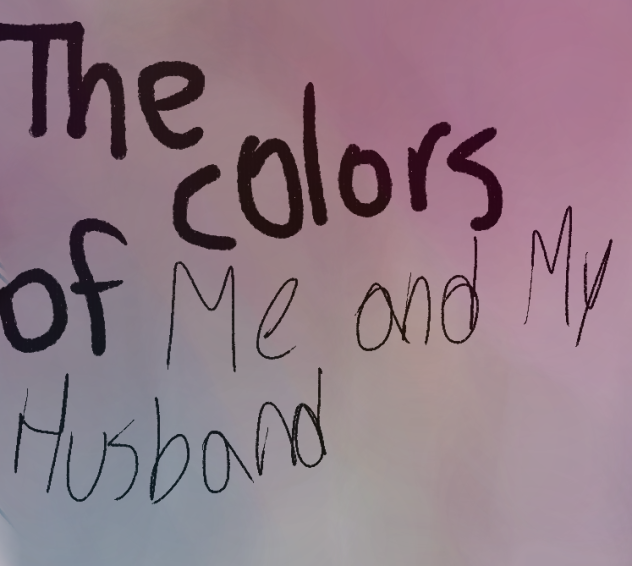 The
colors
of Me and My
Husband